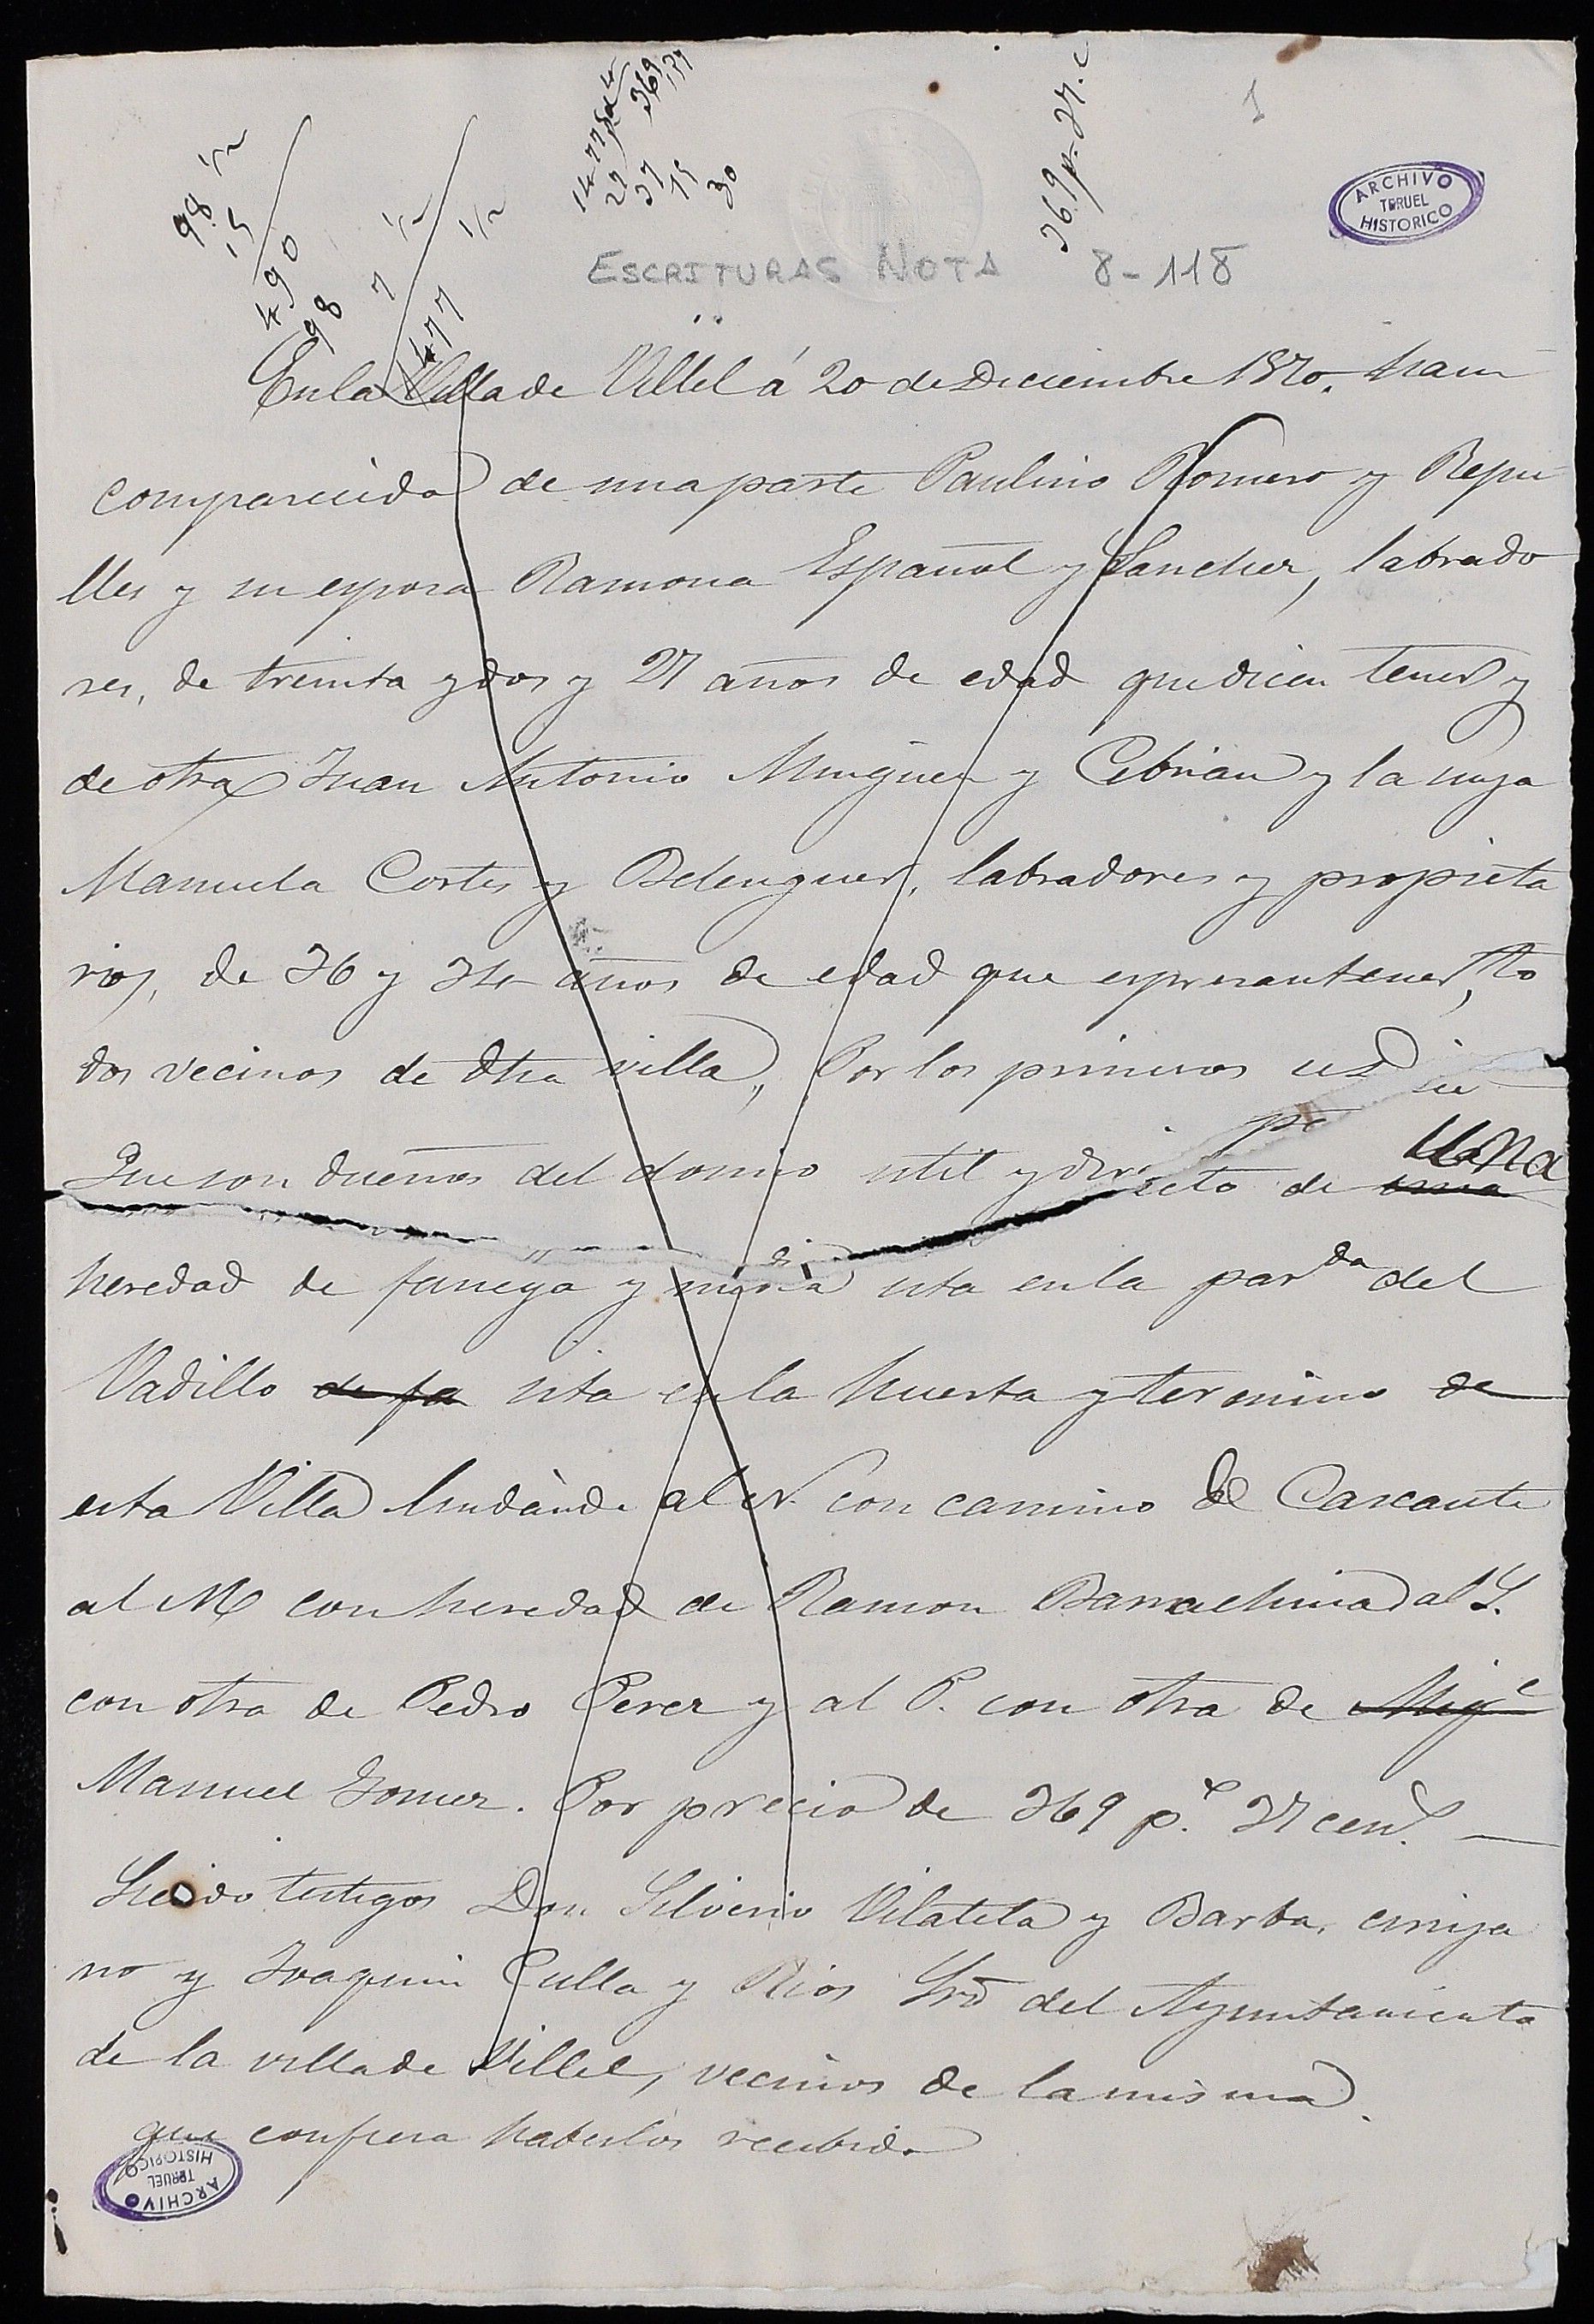 1
98 1/2
15
490
98
7 1/2
1/2
1477
22
37
15
30
369
369 p. 37. c
ARCHIVO
TERUEL
HISTORICO
ESCRITURAS NOTA 8-118
En la Villa de Villel á 20 de Diciembre 1870. han
comparecido de una parte Paulino Romero y Repu
lles y su esposa Ramona Español y Sanchez, labrado
res, de treinta y dos y 27 años de edad que dicen tener y
de otra Juan Antonio Minguez y Cebrian y la suya
Manuela Cortes y Belenguer, labradores y propieta
rios, de 36 y 34 años de edad que espresan tener, to
dos vecinos de dha villa, Por los primeros se
Que son dueños del domino util y directo de una una
heredad de fanega y media sita en la par.da del
Vadillo de fa sita en la huerta y termino de
esta Villa lindando al N. con camino de Cascante
al M con heredad de Ramon Barrachina al S.
con otra de Pedro Perez y al P. con otra de Migl
Manuel Gomez. Por precio de 369 p.s 37 cen.s
Siendo testigos Don Silverio Vilatela y Barba, ciruja
no y Joaquin Culla y Rios Srio del Ayuntamiento
de la villa de Villel, vecinos de la misma.
que confiesa haberlos recibido
ARCHIVO
TERUEL
HISTORICO